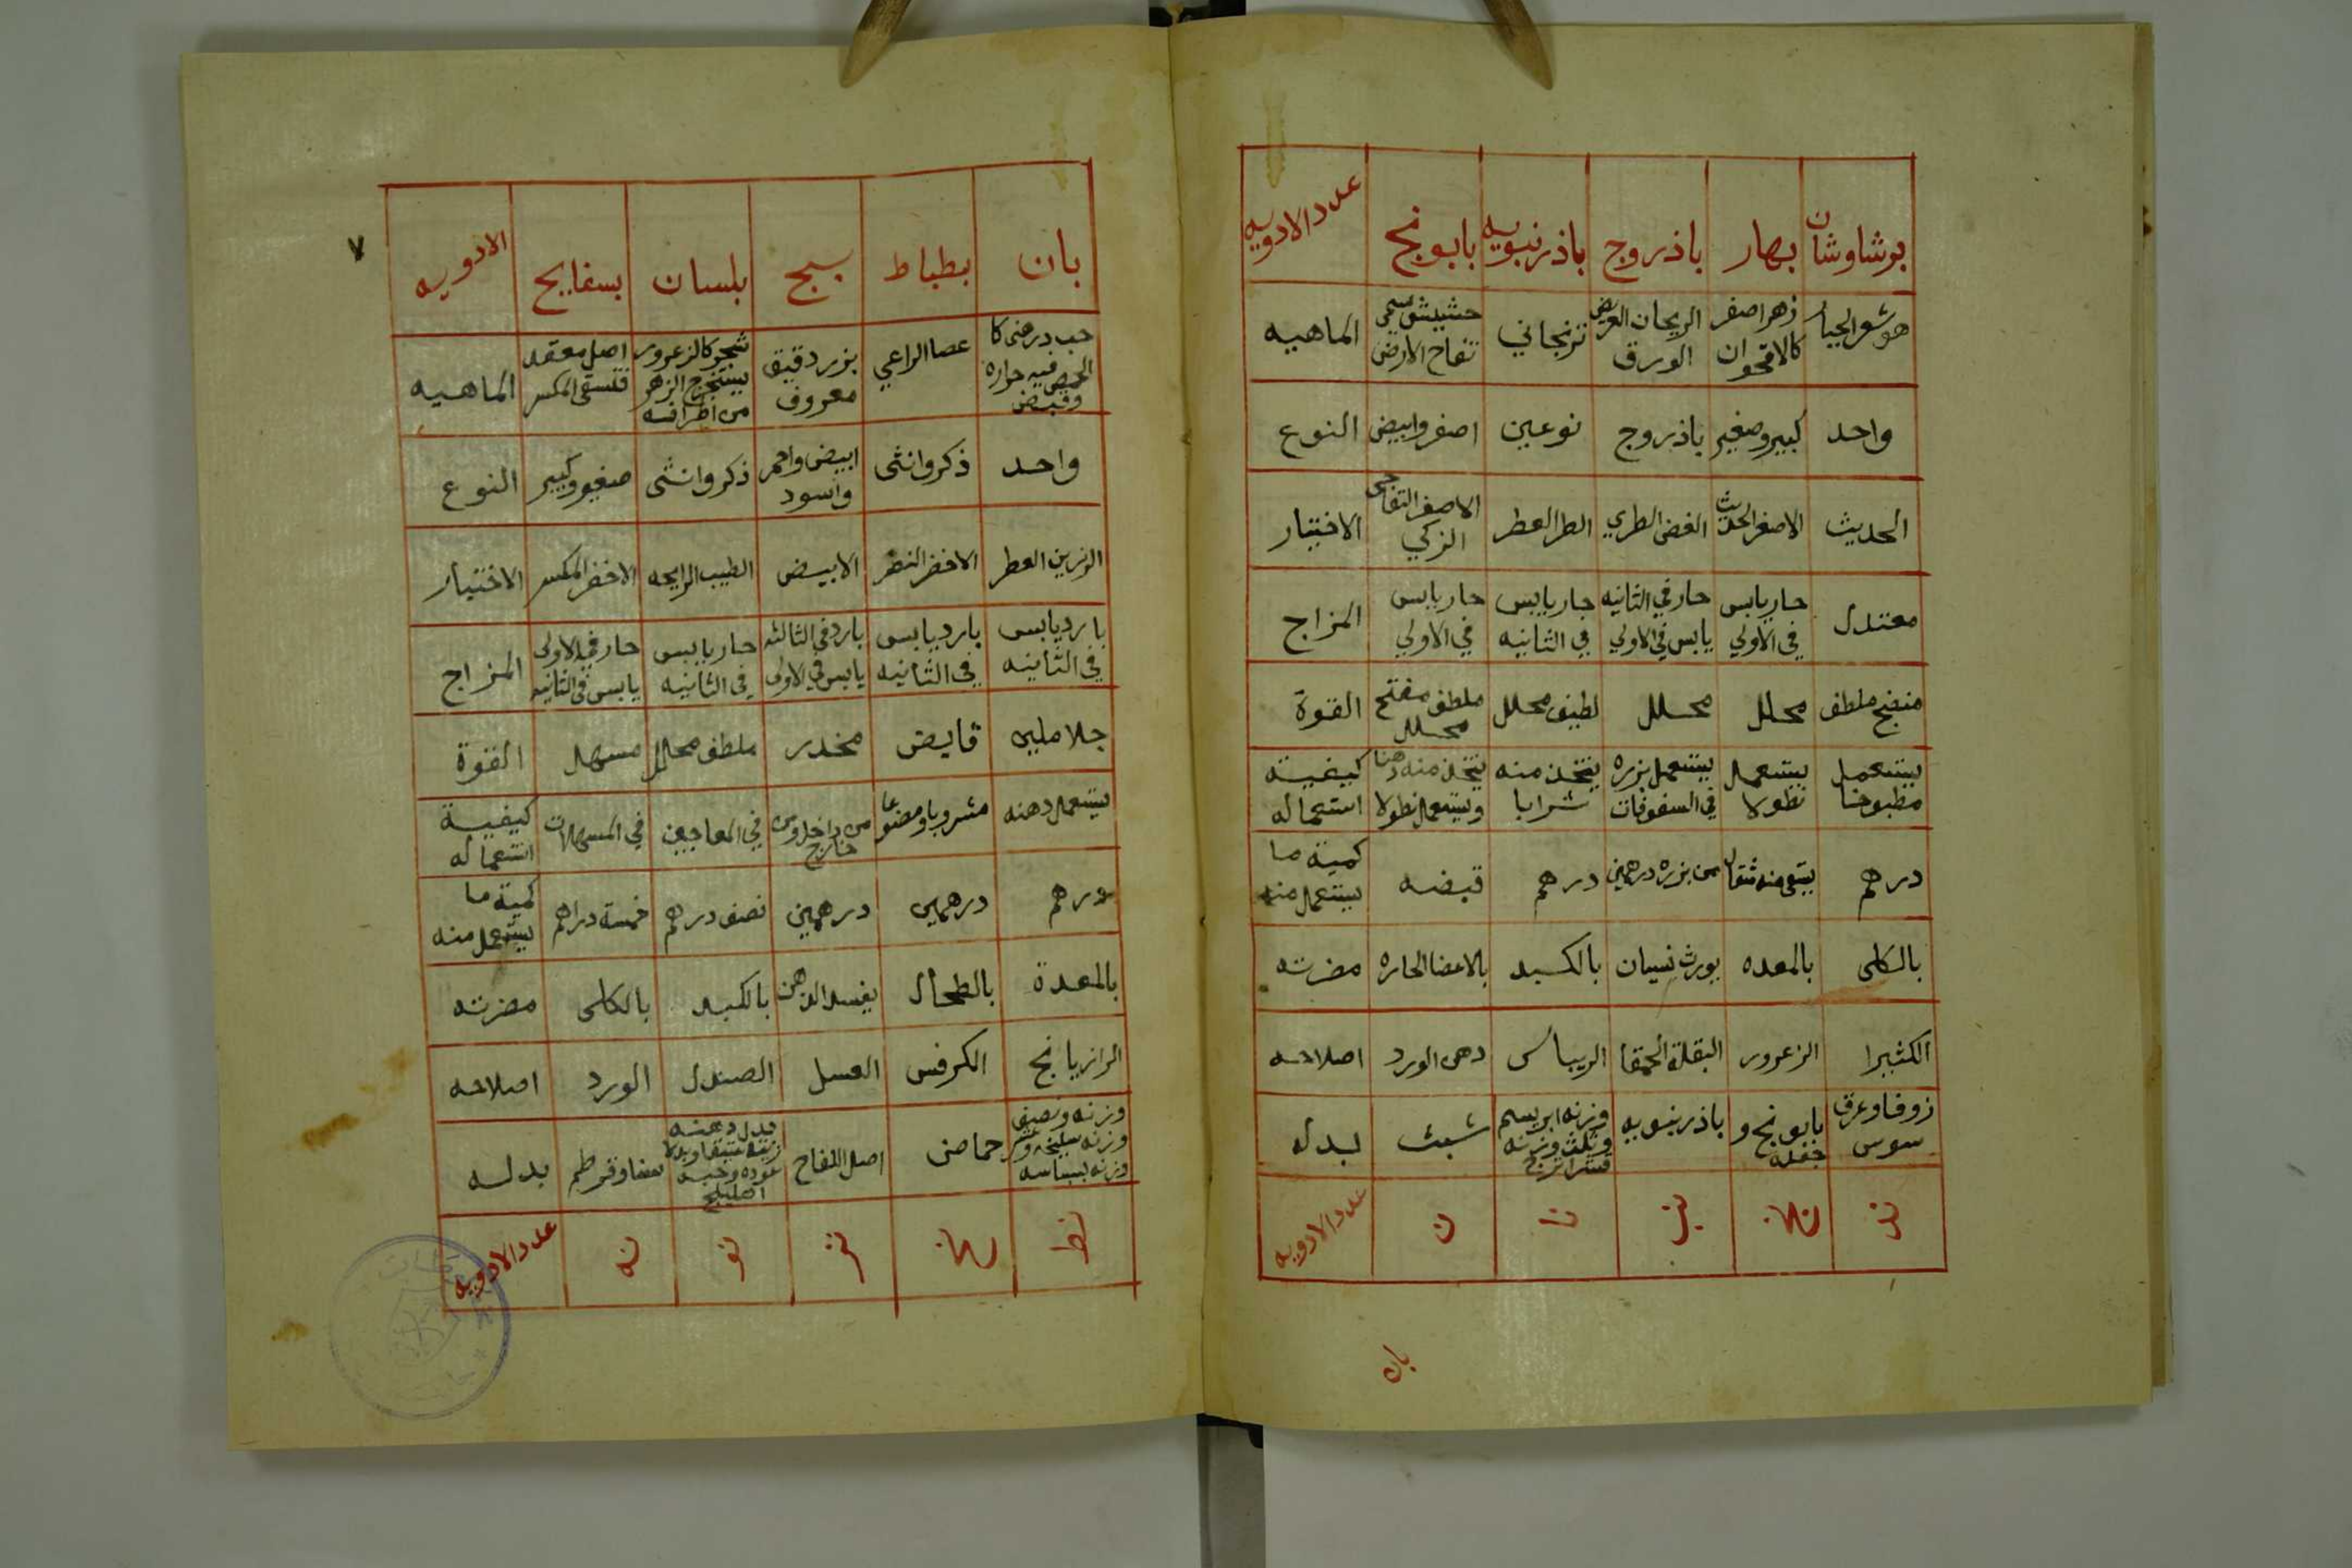 برشاوشان بهار باذروج باذرنبويه بابونج عدد الادويه
هو شعر الجبار زهر اصفر كالاقحوان الريحان العريض الورق ترنجاني حشيش سمى تفاح الارض الماهيه
واحد كبير وصغير باذروج نوعين اصفر وابيض النوع
الحديث الاصفر الحديث الغض الطري الطر العطر الاصفر التفاحى الزكي الاختيار
معتدل حار يابس في الاولي حار في الثانيه يابس في الاولي حار يابس في الثانيه حار يابس في الاولي المزاج
منضج ملطف محلل محلل لطيف محلل ملطف مفتح محلل القوة
يستعمل مطبوخا يستعمل نطولا يستعمل بزره في السفوفات يتخذ منه شرابا يتخذ منه دهنا ويستعمل نطولا كيفية استعماله
درهم يسقى منه مثقال من بزره درهمين درهم قبضه كمية ما يستعمل منه
بالكلى بالمعده يورث نسيان بالكبد بالاعضا الحاره مضرته
الكثيرا الزعرور البقلة الحمقا الريباس دهن الورد اصلاحه
زوفا وعرق سوس بابونج و باذرنبويه وزنه ابريسم وثلث وزنه قشر اترج شبث بدله
ند نج ن عدد الادويه
بان
٧
بان بطباط بنج بلسان بسفايج الادويه
حب درهنى كا الحمص فيه حراره وقبض عصا الراعي بزر دقيق معروف شجر كالزعرور يستخرج الزهر من اطرافه اصل معقد فستقى المكسر الماهيه
واحد ذكر وانثى ابيض واحمر واسود ذكر وانثى صغير وكبير النوع
الوزين العطر الاخضر النضر الابيض الطيب الرايحه الاخضر المكسر الاختيار
بارد يابس في الثانيه بارد يابس في الثانيه بارد في الثالثه يابس في الاولى حار يابس في الثانيه حار في الاولى يابس في الثانيه المزاج
جلا ملين قابض مخدر ملطف محلل مسهل القوة
يستعمل دهنه مشروبا ومضوغا من داخل ومن خارج في المعاجين في المسهلات كيفية استعماله
درهم درهمين درهمين نصف درهم خمسة دراهم كمية ما يستعمل منه
بالمعدة بالطحال يفسد الذهن بالكبد بالكلى مضرته
الرازيانج الكرفس العسل الصندل الورد اصلاحه
وزنه ونصف وزنه سليخه وعشر وزنه بسباسه حماض اصل اللفاح بدل دهنه عوده وحبه اهليلج بدله
نط نح نز نو نه عدد الادويه